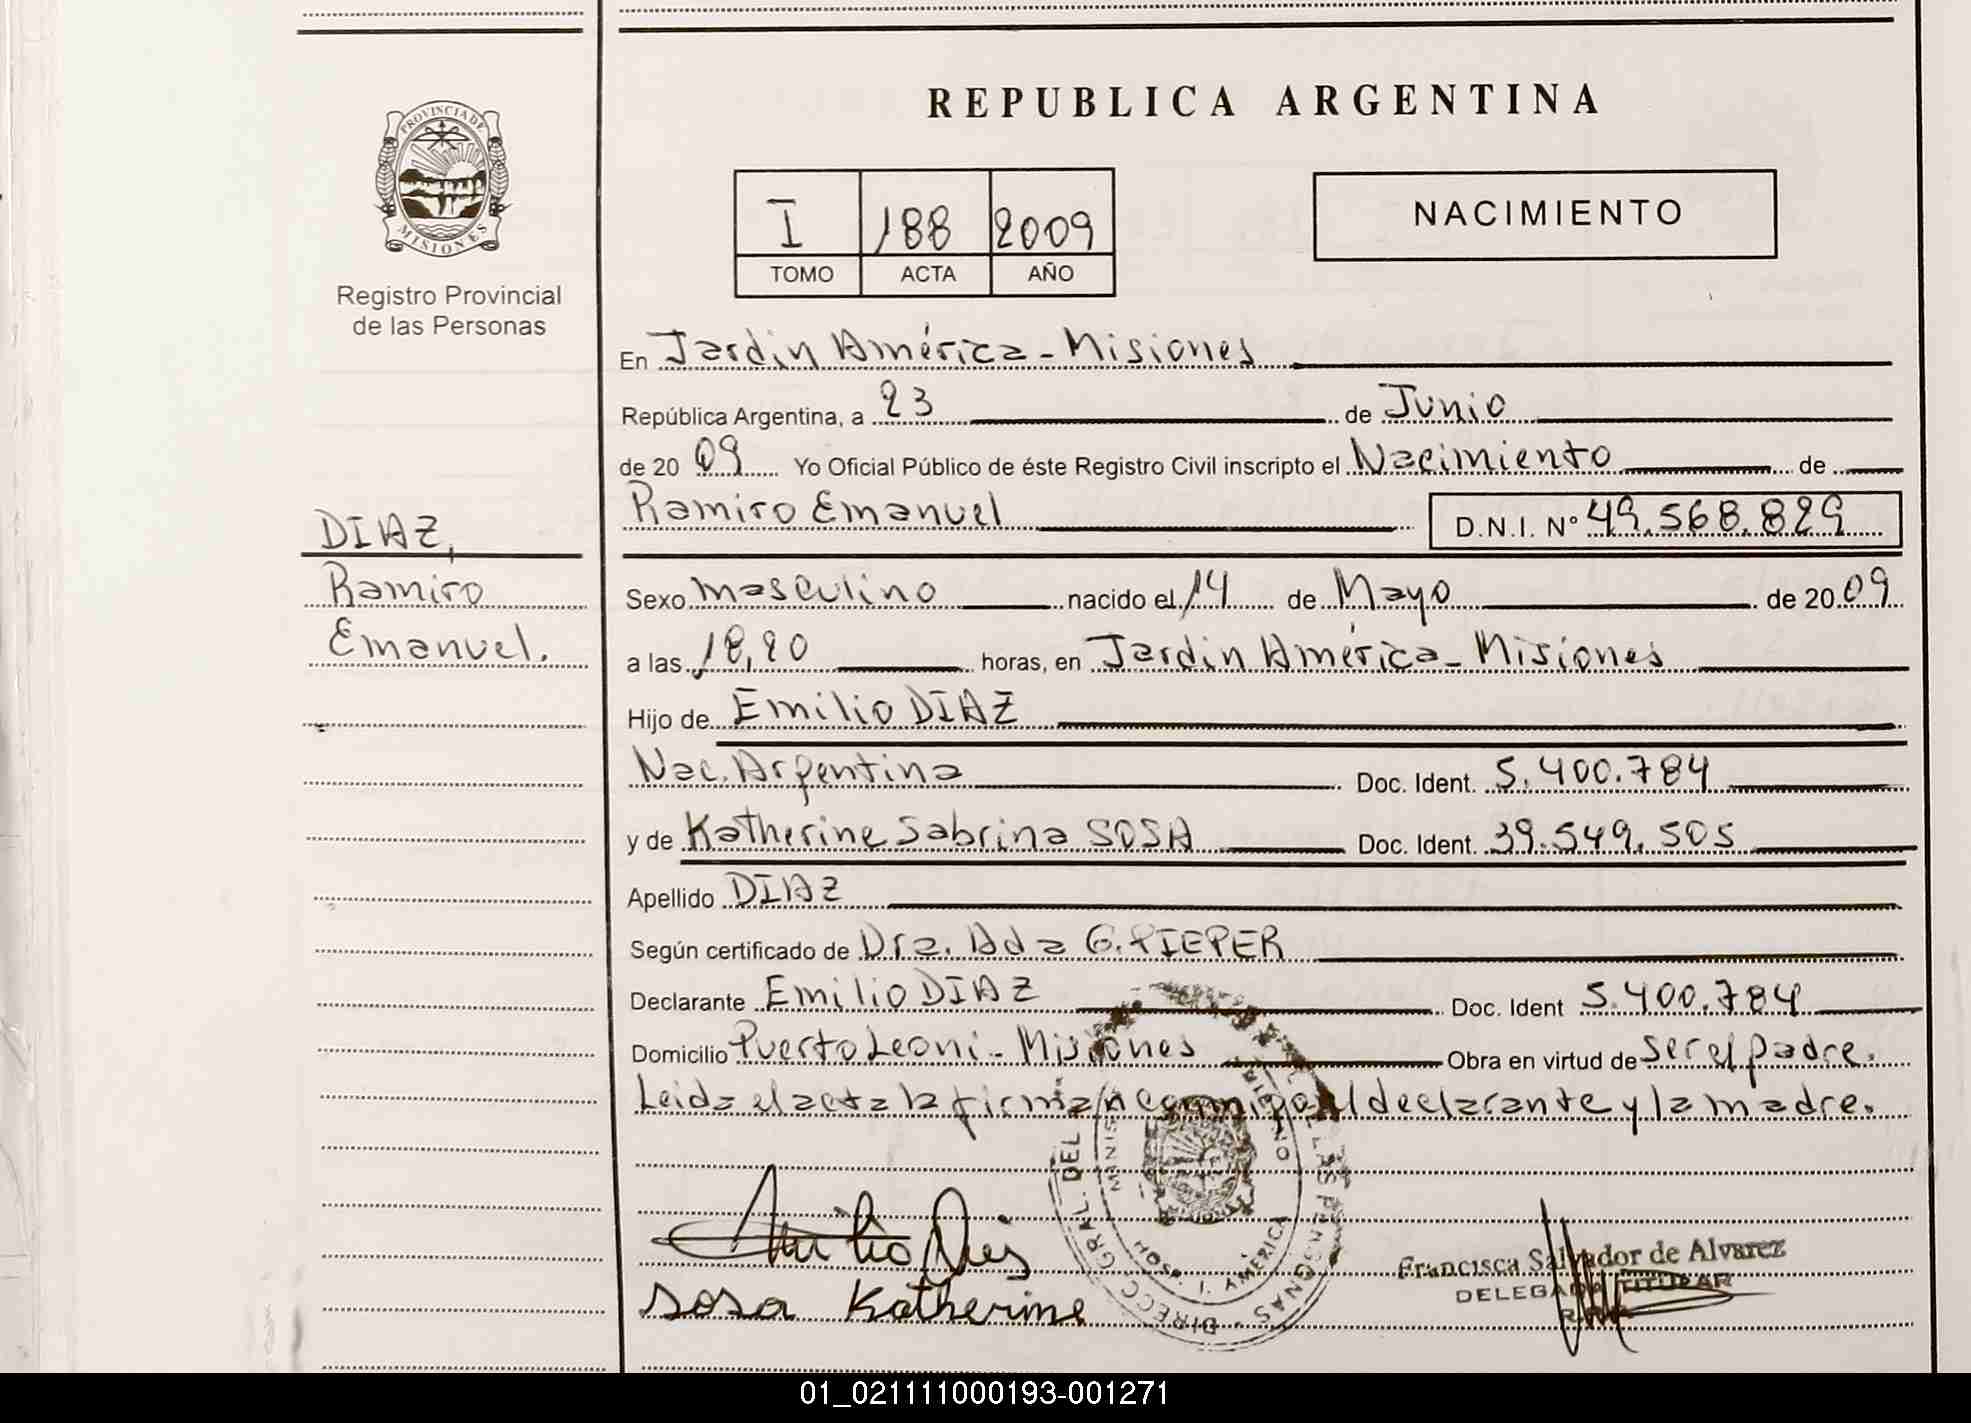 REPUBLICA ARGENTINA
PROVINCIA DE
MISIONES
Registro Provincial
de las Personas
I 188 2009
TOMO ACTA AÑO
NACIMIENTO
En Jardin América - Misiones
República Argentina, a 23 de Junio
de 20 09 Yo Oficial Público de éste Registro Civil inscripto el Nacimiento de
Ramiro Emanuel D.N.I. Nº 49.568.829
DIAZ,
Ramiro
Emanuel.
Sexo masculino nacido el 14 de Mayo de 20 09
a las 18,20 horas, en Jardin América - Misiones
Hijo de Emilio DIAZ
Nac. Argentina Doc. Ident. 5.400.784
y de Katherine Sabrina SOSA Doc. Ident. 39.549.505
Apellido DIAZ
Según certificado de Dra. Ada G. PIEPER
Declarante Emilio DIAZ Doc. Ident 5.400.784
Domicilio Puerto Leoni - Misiones Obra en virtud de ser el padre.
Leida el acta la firman conmigo el declarante y la madre.
DIRECC. GRAL. DEL
AMERICA
Emilio
sosa Katherine
Francisca Salvador de Alvarez
DELEGADA TITULAR
01_021111000193-001271